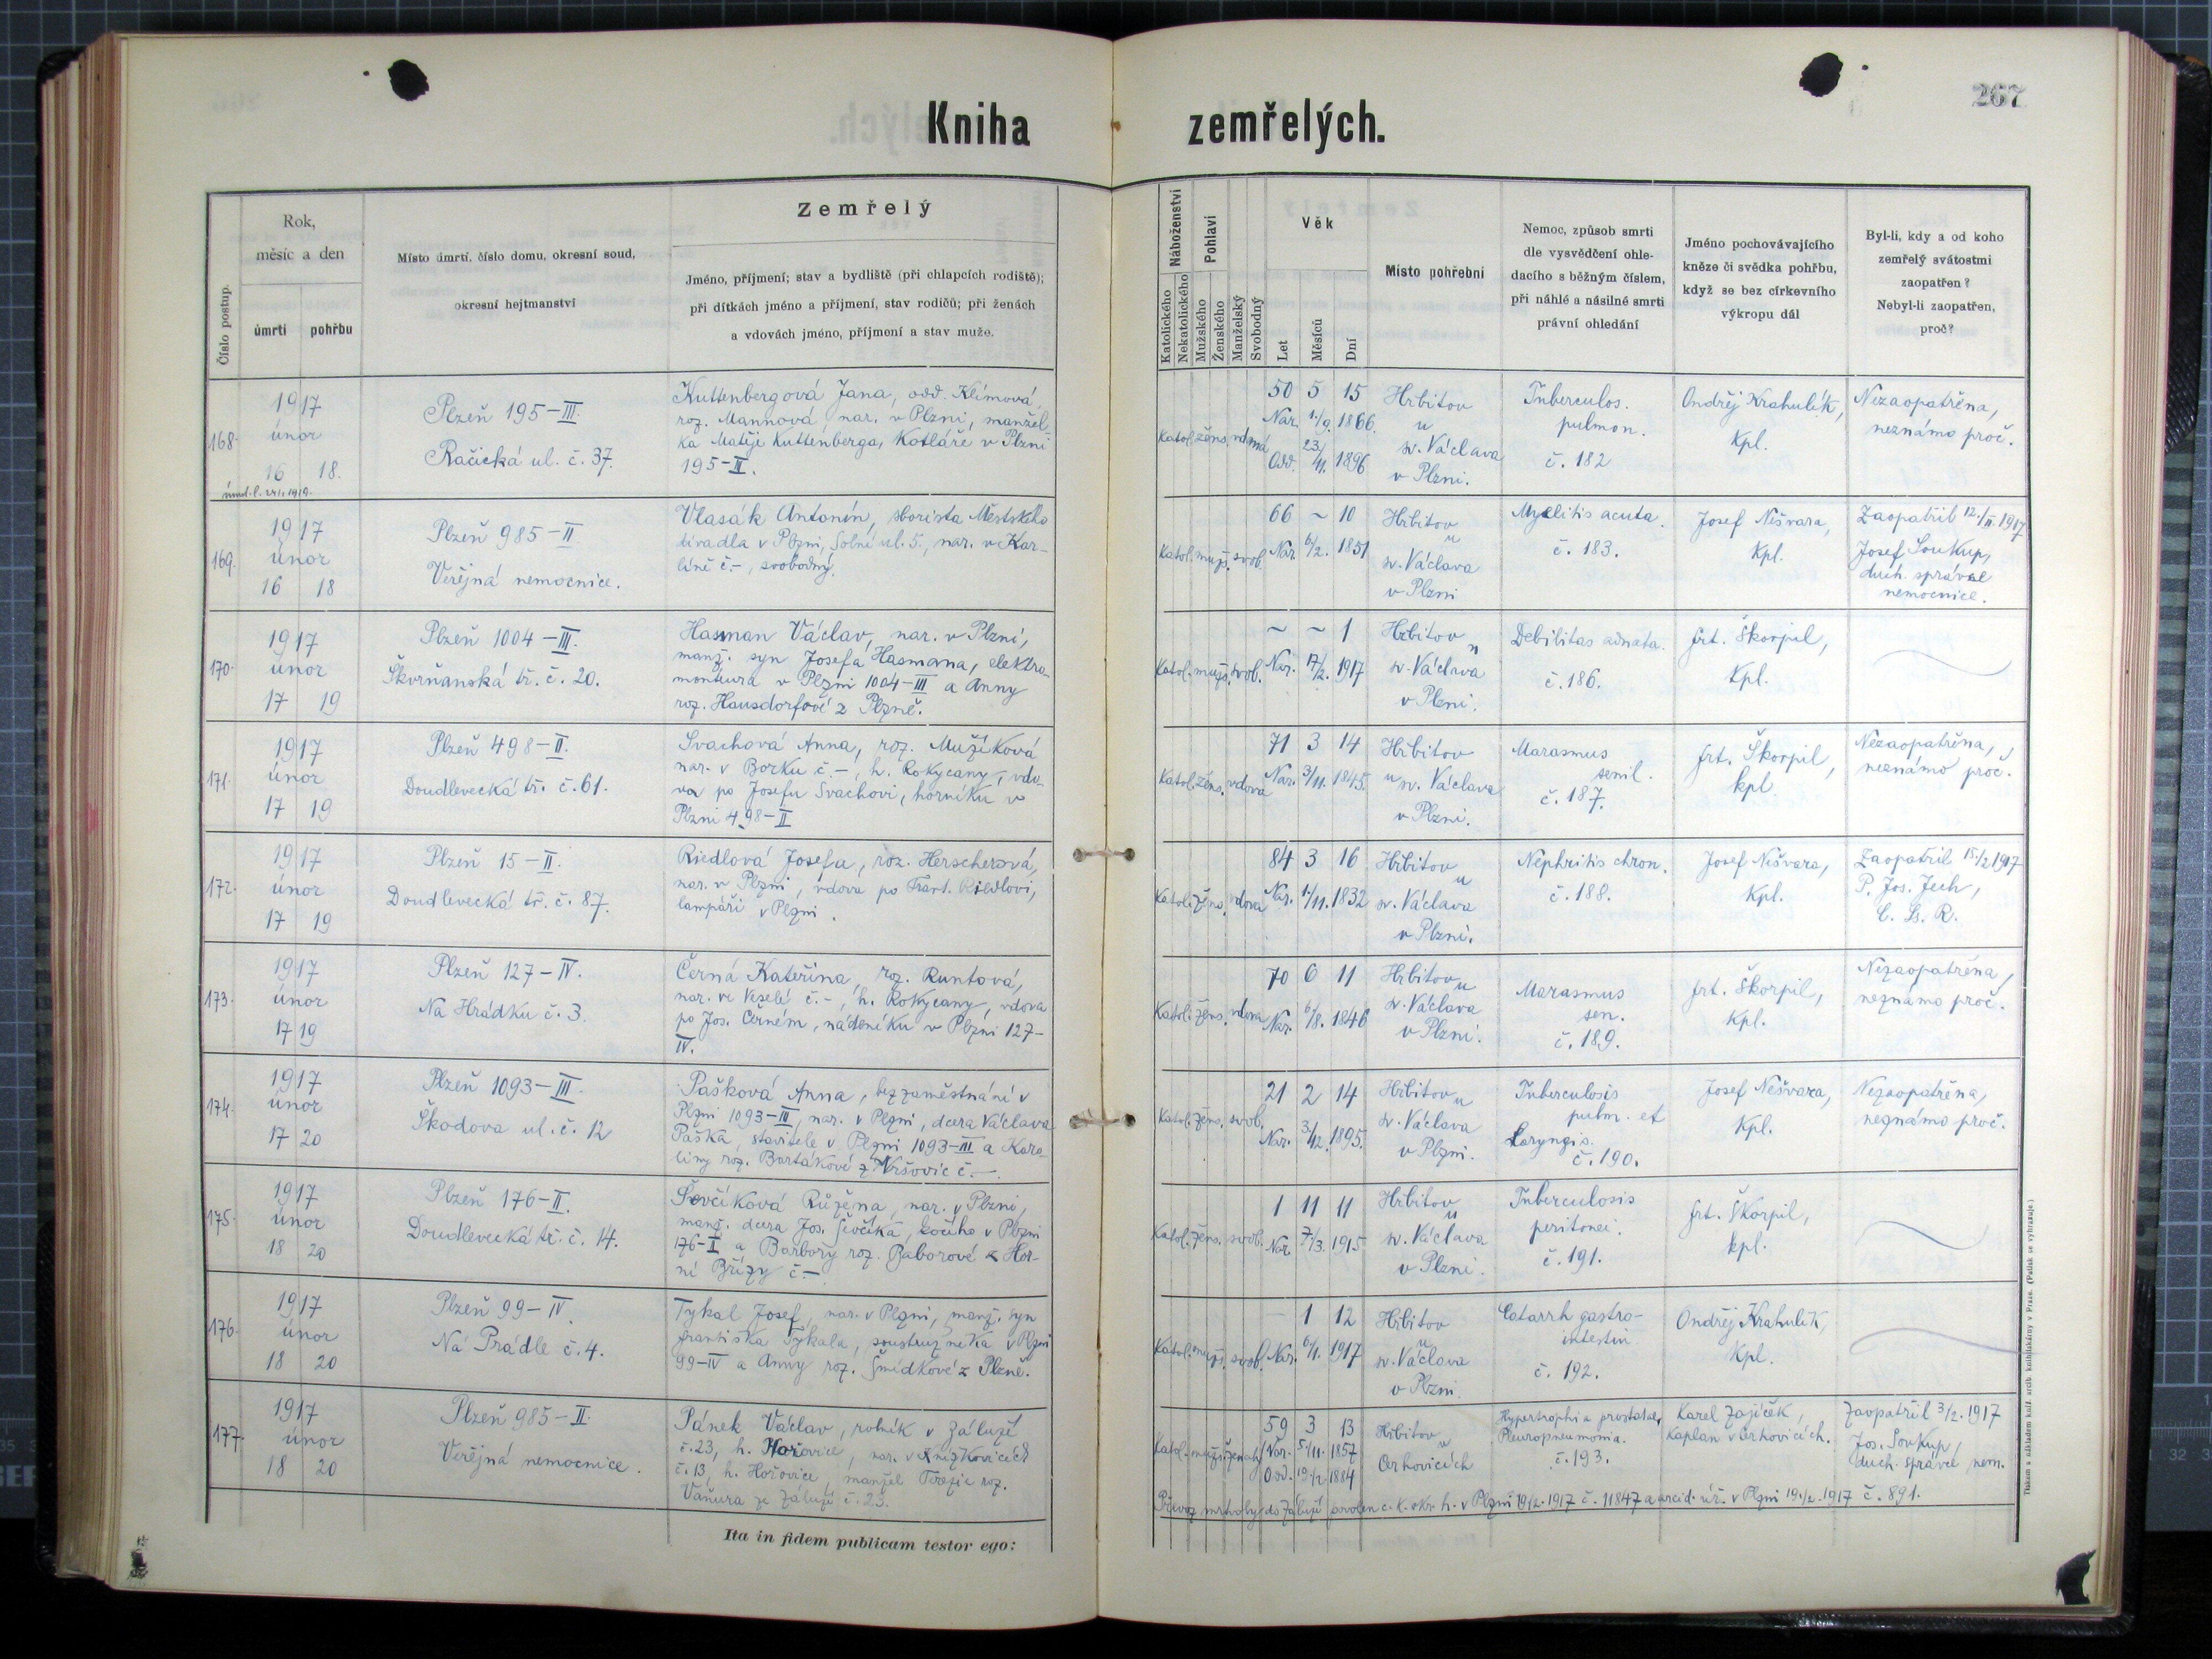 267
Kniha zemřelých.
Číslo postup.
Rok,
měsíc a den
úmrtí pohřbu
Místo úmrtí, číslo domu, okresní soud,
okresní hejtmanství
Zemřelý
Jméno, příjmení; stav a bydliště (při chlapcích rodiště);
při dítkách jméno a příjmení, stav rodičů; při ženách
a vdovách jméno, příjmení a stav muže.
Náboženství
Katolického
Nekatolického
Pohlaví
Mužského
Ženského
Manželský
Svobodný
Věk
Let
Měsíců
Dní
Místo pohřební
Nemoc, způsob smrti
dle vysvědčení ohle-
dacího s běžným číslem,
při náhlé a násilné smrti
právní ohledání
Jméno pochovávajícího
kněze či svědka pohřbu,
když se bez církevního
výkropu dál
Byl-li, kdy a od koho
zemřelý svátostmi
zaopatřen?
Nebyl-li zaopatřen,
proč?
168.
1917
únor
16 18.
Plzeň 195-III.
Račická ul. č. 37.
Kuttenbergová Jana, odd. Klímová,
roz. Mannová, nar. v Plzni, manžel-
ka Matěje Kuttenberga, Kotláře v Plzni
195-II.
Katol. žens. vdaná
50 5 15
Nar. 1./9. 1866.
Odd. 23./11. 1896
Hřbitov
u
sv. Václava
v Plzni.
Tuberculos.
pulmon.
č. 182
Ondřej Krahulík,
Kpl.
Nezaopatřena,
neznámo proč.
169.
1917
únor
16 18
Plzeň 985-II
Veřejná nemocnice.
Vlasák Antonín, sborista Městského
divadla v Plzni, Solní ul. 5., nar. v Kar-
líně č.-, svobodný.
Katol. muž. svob.
66 ~ 10
Nar. 6/2. 1851
Hřbitov
u
sv. Václava
v Plzni
Myelitis acuta.
č. 183.
Josef Nešvara,
Kpl.
Zaopatřil 12./II. 1917
Josef Soukup,
duch. správce
nemocnice.
170.
1917
únor
17 19
Plzeň 1004-III.
Škvrňanská tř. č. 20.
Hasman Václav, nar. v Plzni,
manž. syn Josefa Hasmana, elektro-
monteura v Plzni 1004-III a Anny
roz. Hausdorfové z Plzně.
Katol. muž. svob.
~ ~ 1
Nar. 17/2. 1917
Hřbitov
u
sv. Václava
v Plzni.
Debilitas adnata.
č. 186.
Frt. Škorpil,
Kpl.
171.
1917
únor
17 19
Plzeň 498-II.
Doudlevecká tř. č. 61.
Svachová Anna, roz. Mužíková
nar. v Borku č.-, h. Rokycany, vdo-
va po Josefu Svachovi, horníku v
Plzni 498-II
Katol. žens. vdova
71 3 14
Nar. 3/11. 1845.
Hřbitov
u sv. Václava
v Plzni.
Marasmus
senil.
č. 187.
Frt. Škorpil,
kpl.
Nezaopatřena,
neznámo proč.
172.
1917
únor
17 19
Plzeň 15-II.
Doudlevecká tř. č. 87.
Riedlová Josefa, roz. Herscherová,
nar. v Plzni, vdova po Frant. Riedlovi,
lampáři v Plzni.
Katol. žens. vdova
84 3 16
Nar. 1/11. 1832
Hřbitov
u
sv. Václava
v Plzni.
Nephritis chron.
č. 188.
Josef Nešvara,
Kpl.
Zaopatřil 15/2 1917
P. Jos. Jech,
C. Ss. R.
173.
1917
únor
17 19
Plzeň 127-IV.
Na Hrádku č. 3.
Černá Kateřina, roz. Runtová,
nar. ve Veselé č.-, h. Rokycany, vdova
po Jos. Černém, nádeníku v Plzni 127-
IV.
Katol. žens. vdova
70 6 11
Nar. 6/8. 1846
Hřbitov u
sv. Václava
v Plzni.
Marasmus
sen.
č. 189.
Frt. Škorpil,
Kpl.
Nezaopatřena,
neznámo proč.
174.
1917
únor
17 20
Plzeň 1093-III.
Škodova ul. č. 12
Pašková Anna, bez zaměstnání v
Plzni 1093-III, nar. v Plzni, dcera Václava
Paška, stavitele v Plzni 1093-III a Karo-
liny roz. Bartákové z Nršovic č.-
Katol. žens. svob.
21 2 14
Nar. 3/12. 1895.
Hřbitov u
sv. Václava
v Plzni.
Tuberculosis
pulm. et
Laryngis.
č. 190.
Josef Nešvara,
Kpl.
Nezaopatřena,
neznámo proč.
175.
1917
únor
18 20
Plzeň 176-II.
Doudlevecká tř. č. 14.
Ševčíková Růžena, nar. v Plzni,
manž. dcera Jos. Ševčíka, kočího v Plzni
176-II a Barbory roz. Baborové z Hor-
ní Břízy č.-
Katol. žens. svob.
1 11 11
Nar. 7/3. 1915
Hřbitov
u
sv. Václava
v Plzni.
Tuberculosis
peritonei.
č. 191.
Frt. Škorpil,
kpl.
176.
1917
únor
18 20
Plzeň 99-IV.
Na Prádle č. 4.
Tykal Josef, nar. v Plzni, manž. syn
Františka Tykala, soustružníka v Plzni
99-IV a Anny roz. Šmídkové z Plzně.
Katol. muž. svob.
- 1 12
Nar. 6/1. 1917
Hřbitov
u
sv. Václava
v Plzni.
Catarrh gastro-
intestin
č. 192.
Ondřej Krahulík,
Kpl.
177.
1917
únor
18 20
Plzeň 985-II.
Veřejná nemocnice.
Pánek Václav, rolník v Záluží
č. 23, h. Hořovice, nar. v Kněžkovicích
č. 13, h. Hořovice, manžel Terezie roz.
Vaňura ze Záluží č. 23.
Katol. muž. ženatý
59 3 13
Nar. 5/11. 1857
Odd. 19/2 1884
Hřbitov
v
Cerhovicích
Hypertrophia prostatae,
Pleuropneumonia.
č. 193.
Karel Zajíček,
kaplan v Cerhovicích.
Zaopatřil 3/2. 1917
Jos. Soukup,
duch. správce nem.
Převoz mrtvoly do Záluží povolen c. k. okr. h. v Plzni 19/2. 1917 č. 11847 a arcid. úř. v Plzni 19./2. 1917 č. 891.
Ita in fidem publicam testor ego: